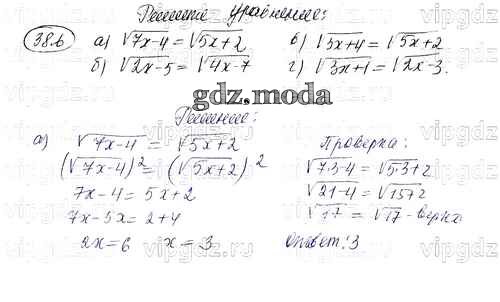 Решите уравнение:
38.6 а) √7x-4 = √5x+2 в) √3x+4 = √5x+2
б) √2x-5 = √4x-7 г) √3x+1 = √2x-3.
gdz.moda
Решение:
а) √7x-4 = √5x+2
(√7x-4)² = (√5x+2)²
7x-4 = 5x+2
7x-5x = 2+4
2x=6 x = 3
Проверка:
√7·3-4 = √5·3+2
√21-4 = √15+2
√17 = √17 - верно
Ответ: 3